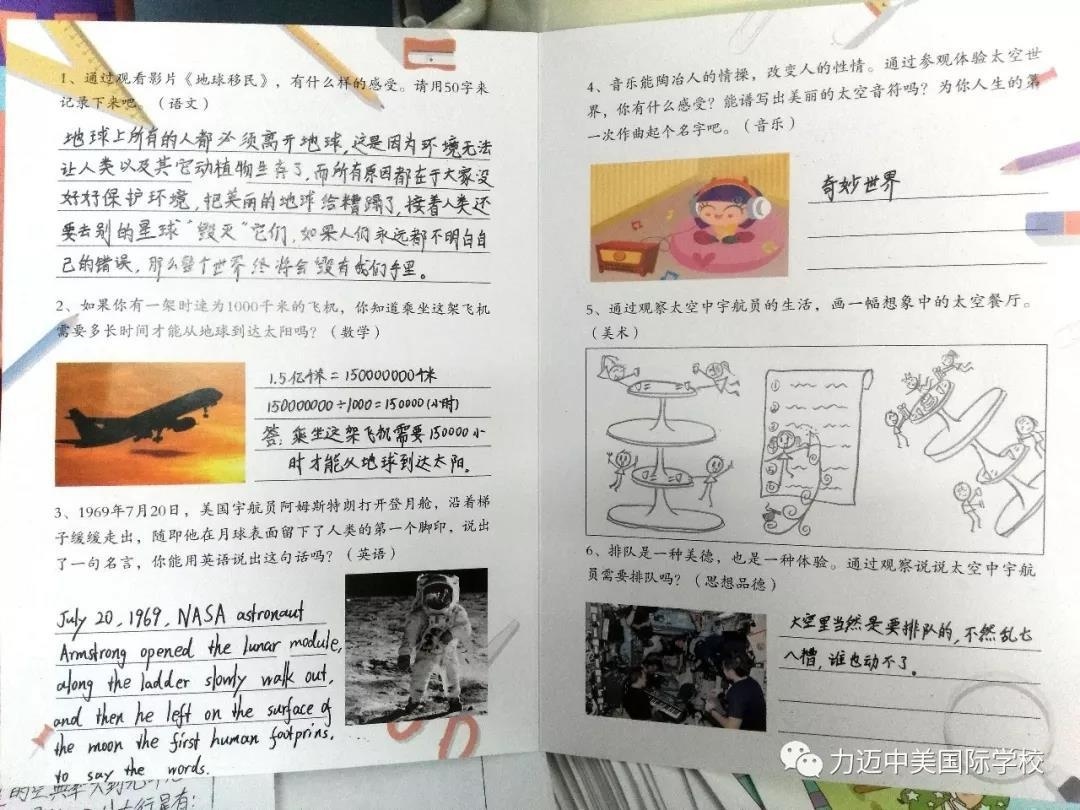 1、通过观看影片《地球移民》，有什么样的感受。请用50字来
记录下来吧。（语文）
地球上所有的人都必须离开地球，这是因为环境无法
让人类以及其它动植物生存了，而所有原因都在于大家没
好好保护环境，把美丽的地球给糟蹋了，接着人类还
要去别的星球“毁灭”它们，如果人们永远都不明白自
己的错误，那么整个世界终将会毁在我们手里。
2、如果你有一架时速为1000千米的飞机，你知道乘坐这架飞机
需要多长时间才能从地球到达太阳吗？（数学）
1.5亿千米=150000000千米
150000000÷1000=150000(小时)
答：乘坐这架飞机需要150000小
时才能从地球到达太阳。
3、1969年7月20日，美国宇航员阿姆斯特朗打开登月舱，沿着梯
子缓缓走出，随即他在月球表面留下了人类的第一个脚印，说出
了一句名言，你能用英语说出这句话吗？（英语）
July 20, 1969, NASA astronaut
Armstrong opened the lunar module,
along the ladder slowly walk out,
and then he left on the surface of
the moon the first human footprins,
to say the words.
4、音乐能陶冶人的情操，改变人的性情。通过参观体验太空世
界，你有什么感受？能谱写出美丽的太空音符吗？为你人生的第
一次作曲起个名字吧。（音乐）
奇妙世界
5、通过观察太空中宇航员的生活，画一幅想象中的太空餐厅。
（美术）
6、排队是一种美德，也是一种体验。通过观察说说太空中宇航
员需要排队吗？（思想品德）
太空里当然是要排队的，不然乱七
八糟，谁也动不了。
力迈中美国际学校